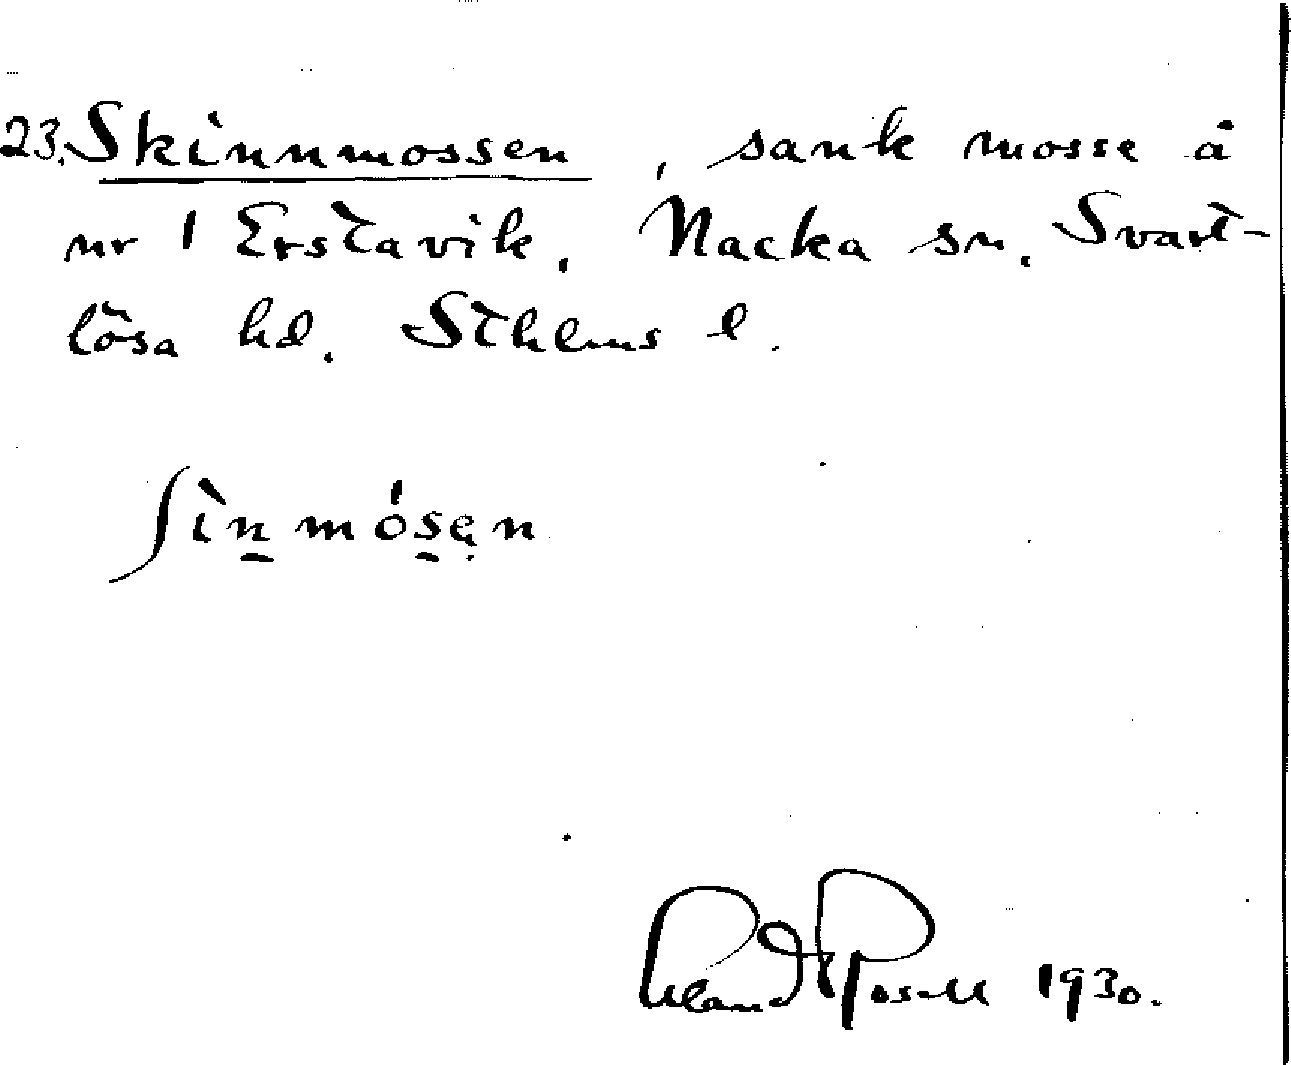 23. Skinnmossen, sank mosse å
nr 1 Erstavik. Nacka sn. Svart-
lösa hd. Sthlms l.
ʃìn̲mós̲ęn
1930.